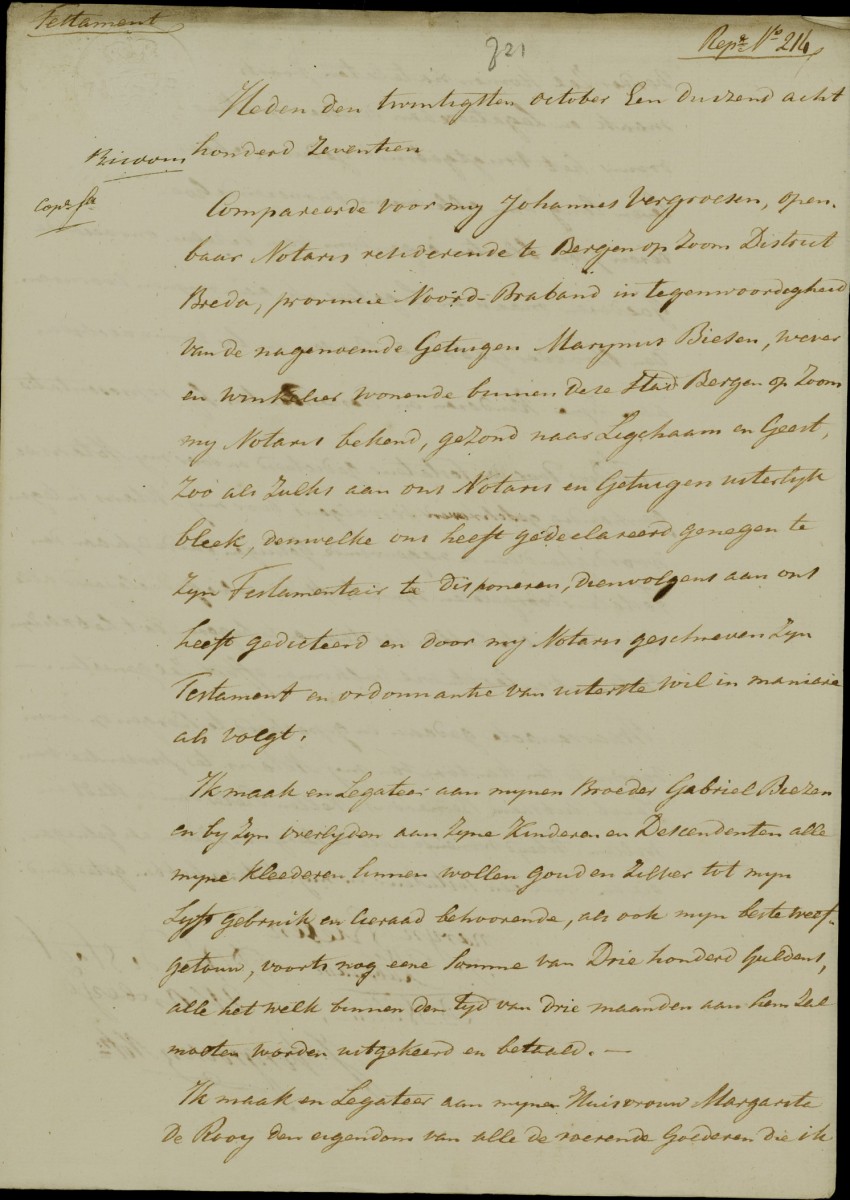 Testament
Rep.e No 214
321
Heden den twintigsten october Een duizend acht
honderd Zeventien
Compareerde voor my Johannes Vergroesen, open-
baar Notaris resideerende te Bergen op Zoom District
Breda, provincie Noord-Braband in tegenwoordigheid
van de nagenoemde Getuigen Marynus Biesen, wever
en winkelier wonende binnen deze Stad Bergen op Zoom
my Notaris bekend, gezond naar Ligchaam en Geest,
Zoo als Zulks aan ons Notaris en Getuigen uiterlyk
bleek, denwelke ons heeft gedeclareerd genegen te
Zyn Testamentair te disponeren, dienvolgens aan ons
heeft gedicteerd en door my Notaris geschreven Zyn
Testament en ordonnantie van uiterste wil in maniere
als volgt.
Ik maak en Legateer aan mynen Broeder Gabriel Biezen
en by Zyn overlyden aan Zyne Kinderen en Descendenten alle
myne Kleederen linnen wollen goud en Zilver tot myn
Lyfs gebruik en cieraad behoorende, als ook myn beste weef-
getouw, voorts nog eene Somme van Drie honderd Guldens,
alle het welk binnen den tyd van drie maanden aan hem Zal
moeten worden uitgekeerd en betaald. —
Ik maak en Legateer aan mynen Huisvrouw Margarita
De Rooy den eigendom van alle de roerende Goederen die ik